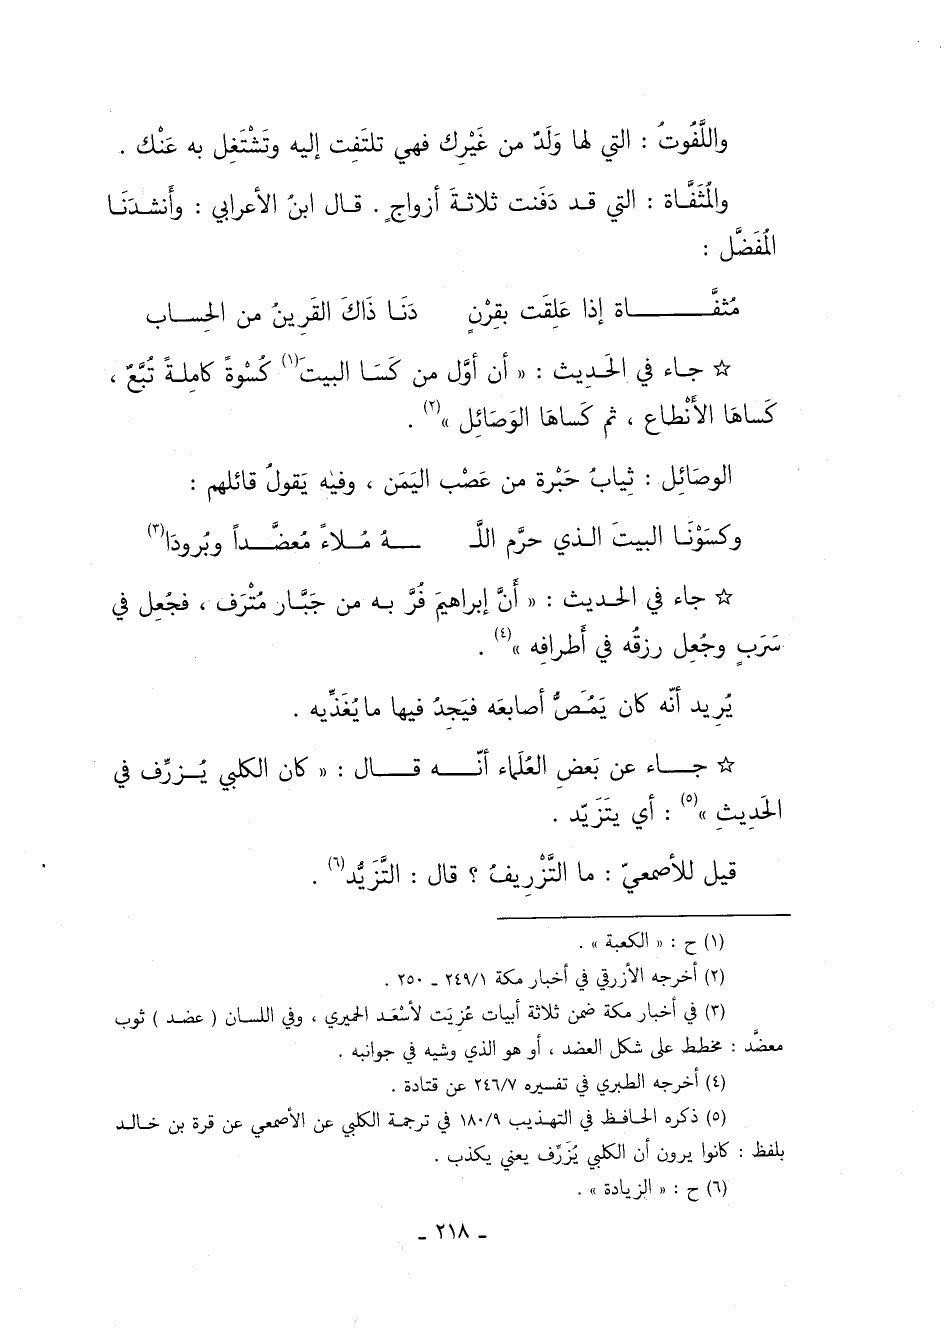 واللَّفُوتُ : التي لها وَلَدٌ من غَيْرِك فهي تلتَفِت إليه وتَشْتَغل به عَنْك .
والمُثَفَّاة : التي قد دَفَنت ثلاثةَ أزواجٍ . قال ابنُ الأعرابي : وأنشدَنَا
المُفَضَّل :
مُثفَّـــــاة إذا عَلِقَت بقِرْنٍ    دَنَا ذَاكَ القَرِينُ من الحِســـاب
☆ جاء في الحَديث : « أن أوَّل من كَسَا البيتَ(١) كُسْوةً كاملةً تُبَّعٌ ،
كَساها الأَنْطاع ، ثم كَساهَا الوَصَائِل »(٢) .
الوصَائِل : ثِيابُ حَبْرة من عَصْب اليَمَن ، وفيْه يَقولُ قائلهم :
وكسَوْنَا البيتَ الذي حرَّم اللَّـ    ـــهُ مُلاءً مُعضَّـداً وبُرودَا(٣)
☆ جاء في الحديث : « أَنَّ إبراهيمَ فُرَّ به من جَبَّار مُتْرَف ، فجُعل في
سَرَبٍ وجُعِل رزقُه في أَطرافِه »(٤) .
يُرِيد أنّه كان يَمُصُّ أصابعَه فيَجِدُ فيها مايُغَذِّيه .
☆ جـاء عن بَعضِ العُلَماء أنّـه قـال : « كان الكلبي يُـزرِّف في
الحَديثِ »(٥) : أي يتَزَيّد .
قيل للأصمعيّ : ما التَّزْرِيفُ ؟ قال : التَّزَيُّد(٦) .
(١) ح : « الكعبة » .
(٢) أخرجه الأزرقي في أخبار مكة ٢٤٩/١ ـ ٢٥٠ .
(٣) في أخبار مكة ضمن ثلاثة أبيات عُزيَت لأسْعَد الحميري ، وفي اللسان ( عضد ) ثوب
معضَّد : مخطط على شكل العضد ، أو هو الذي وشيه في جوانبه .
(٤) أخرجه الطبري في تفسيره ٢٤٦/٧ عن قتادة .
(٥) ذكره الحافظ في التهذيب ١٨٠/٩ في ترجمة الكلبي عن الأصمعي عن قرة بن خالد
بلفظ : كانوا يرون أن الكلبي يُزَرِّف يعني يكذب .
(٦) ح : « الزيادة » .
ـ ٢١٨ ـ